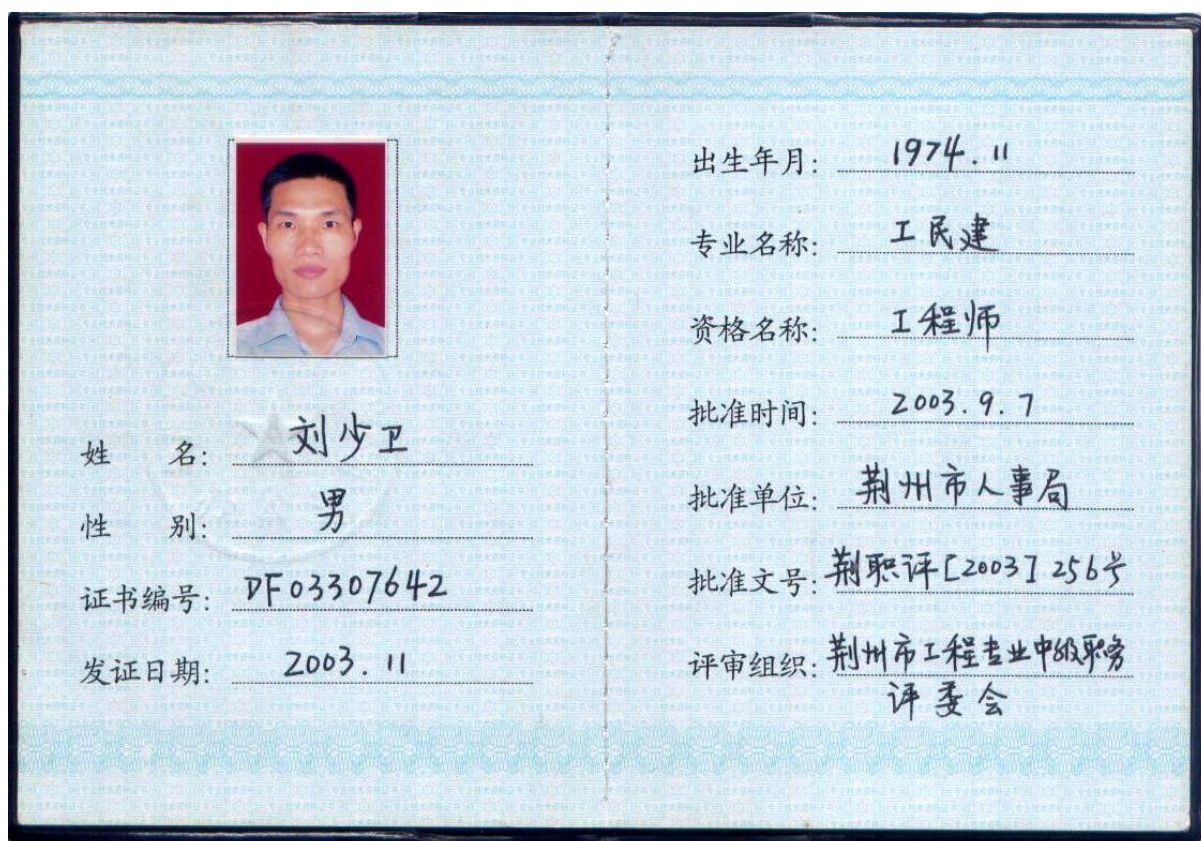 姓 名: 刘少卫
性 别: 男
证书编号: DF03307642
发证日期: 2003.11
出生年月: 1974.11
专业名称: 工民建
资格名称: 工程师
批准时间: 2003.9.7
批准单位: 荆州市人事局
批准文号: 荆职评[2003]256号
评审组织: 荆州市工程专业中级职务
评委会